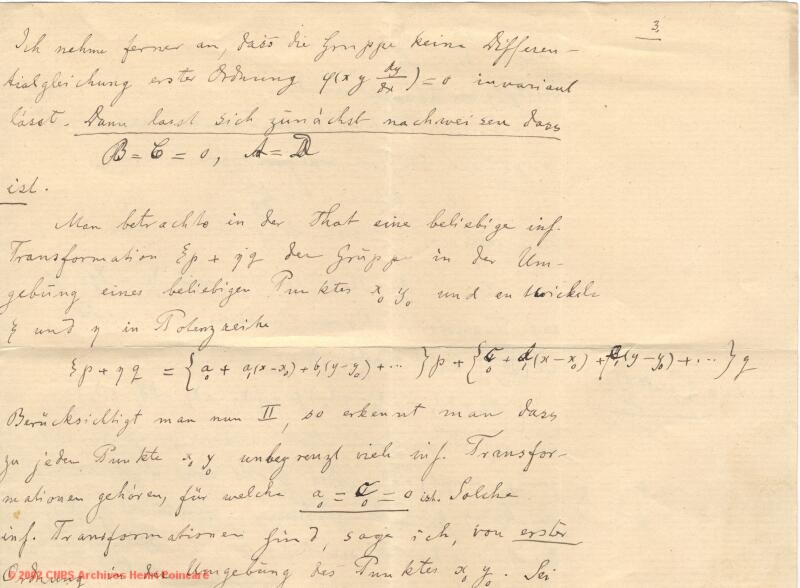 3.
Ich nehme ferner an, dass die Gruppe keine Differen-
tialgleichung erster Ordnung φ(x y dy/dx) = 0 invariant
lässt. Dann lasst sich zunächst nachweisen dass
B = C = 0, A = D
ist.
Man betrachte in der That eine beliebige inf.
Transformation ξp + ηq der Gruppe in der Um-
gebung eines beliebigen Punktes x₀ y₀ und entwickele
ξ und η in Potenzreihe
ξp + ηq = {a₀ + a₁(x-x₀) + b₁(y-y₀) + ... } p + { + (x-x₀) + (y-y₀) + ... } q
Berücksichtigt man nun II, so erkennt man dass
zu jeden Punkte x₀ y₀ unbegrenzt viele inf. Transfor-
mationen gehören, für welche a₀ = = 0 ist. Solche
inf. Transformationen sind, sage ich, von erster
Ordnung in der Umgebung des Punktes x₀ y₀. Sei
© 2002 CNRS Archives Henri Poincaré